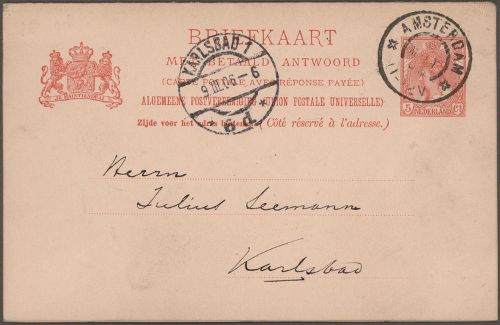 BRIEFKAART
MET BETAALD ANTWOORD
(CARTE POSTALE AVEC RÉPONSE PAYÉE)
ALGEMEENE POSTVEREENIGING (UNION POSTALE UNIVERSELLE)
Zijde voor het adres bestemd. (Côté réservé à l'adresse.)
JE MAINTIENDRAI
KARLSBAD 1
9.III.06-6
* 9.P *
AMSTERDAM
5 Ct
NEDERLAND
Herrn
Julius Seemann
Karlsbad